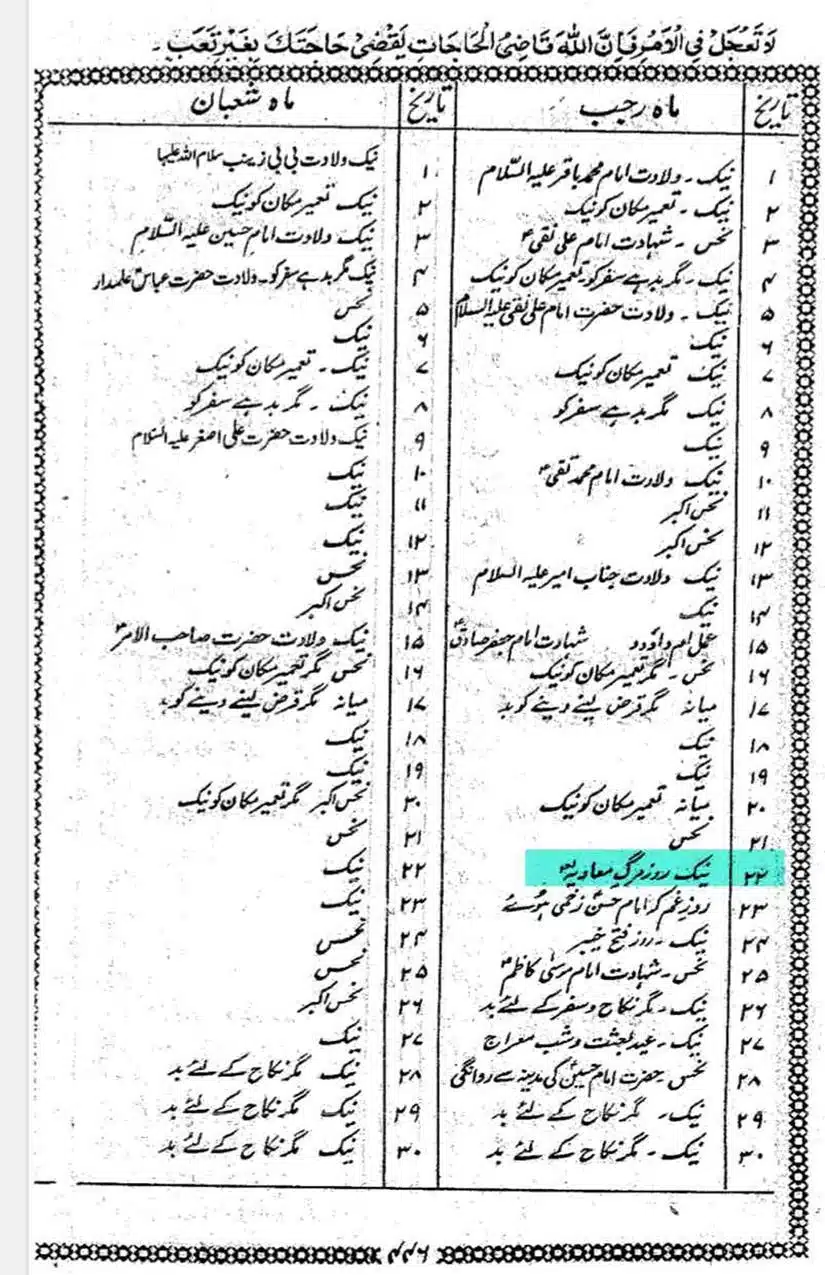 لَا تَعْجَلْ فِي الْاَمْرِ فَاِنَّ اللهَ قَاضِیُ الْحَاجَاتِ لِیَقْضِیْ حَاجَتَكَ بِغَیْرِ تَعَبٍ ۔
تاریخ ماہ رجب تاریخ ماہ شعبان
۱ نیک ۔ ولادت امام محمد باقر علیہ السّلام ۱ نیک ولادت بی بی زینب سلام اللہ علیہا
۲ نیک ۔ تعمیر مکان کو نیک ۲ نیک تعمیر مکان کو نیک
۳ نحس ۔ شہادت امام علی نقیؑ ۳ نیک ولادت امام حسین علیہ السّلام
۴ نیک ۔ مگر بد ہے سفر کو ۔ تعمیر مکان کو نیک ۴ نیک مگر بد ہے سفر کو ۔ ولادت حضرت عباسؑ علمدار
۵ نیک ۔ ولادت حضرت امام علی نقی علیہ السلام ۵ نحس
۶ نیک ۶ نیک
۷ نیک تعمیر مکان کو نیک ۷ نیک ۔ تعمیر مکان کو نیک
۸ نیک مگر بد ہے سفر کو ۸ نیک ۔ مگر بد ہے سفر کو
۹ نیک ۹ نیک ولادت حضرت علی اصغر علیہ السلام
۱۰ نیک ولادت امام محمد تقیؑ ۱۰ نیک
۱۱ نحس اکبر ۱۱ نیک
۱۲ نحس اکبر ۱۲ نیک
۱۳ نیک ولادت جناب امیر علیہ السلام ۱۳ نحس
۱۴ نیک ۱۴ نحس اکبر
۱۵ عمل ام داؤد شہادت امام جعفر صادقؑ ۱۵ نیک ولادت حضرت صاحب الامرؑ
۱۶ نحس ۔ مگر تعمیر مکان کو نیک ۱۶ نحس مگر تعمیر مکان کو نیک
۱۷ میانہ مگر قرض لینے دینے کو بد ۱۷ میانہ مگر قرض لینے دینے کو بد
۱۸ نیک ۱۸ نیک
۱۹ نیک ۱۹ نیک
۲۰ میانہ تعمیر مکان کو نیک ۲۰ نحس اکبر مگر تعمیر مکان کو نیک
۲۱ نحس ۲۱ نحس
۲۲ نیک روز مرگ معاویہ ۲۲ نیک
۲۳ روز غم کہ امام حسنؑ زخمی ہوئے ۲۳ نیک
۲۴ نیک ۔ روز فتح خیبر ۲۴ نحس
۲۵ نحس ۔ شہادت امام موسیٰ کاظمؑ ۲۵ نحس
۲۶ نیک ۔ مگر نکاح و سفر کے لئے بد ۲۶ نحس اکبر
۲۷ نیک ۔ عید بعثت و شب معراج ۲۷ نیک
۲۸ نحس ۔ حضرت امام حسینؑ کی مدینہ سے روانگی ۲۸ نیک مگر نکاح کے لئے بد
۲۹ نیک ۔ مگر نکاح کے لئے بد ۲۹ نیک مگر نکاح کے لئے بد
۳۰ نیک ۔ مگر نکاح کے لئے بد ۳۰ نیک مگر نکاح کے لئے بد